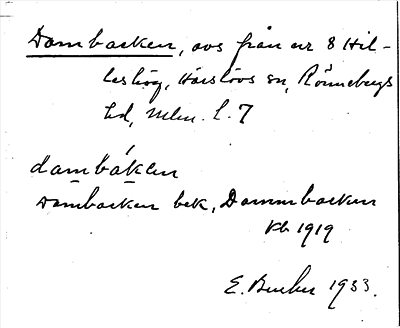 Dambacken, avs från nr 8 Hil-
leshög, Härslövs sn, Rönnebergs
hd, Mlm. l. 7
dambákken
Dambacken bek, Dammbacken
kb 1919
E. Bucht 1933.